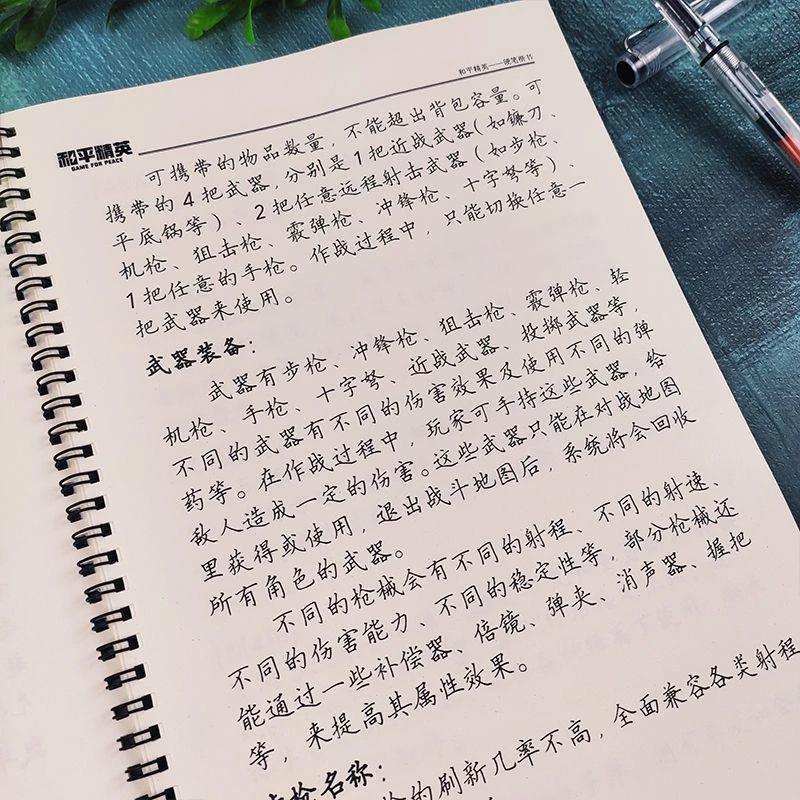 和平精英——硬笔楷书
和平精英
GAME FOR PEACE
可携带的物品数量，不能超出背包容量。可
携带的4把武器，分别是1把近战武器(如镰刀、
平底锅等)、2把任意远程射击武器(如步枪、
机枪、狙击枪、霰弹枪、冲锋枪、十字弩等)、
1把任意的手枪。作战过程中，只能切换任意一
把武器来使用。
武器装备：
武器有步枪、冲锋枪、狙击枪、霰弹枪、轻
机枪、手枪、十字弩、近战武器、投掷武器等，
不同的武器有不同的伤害效果及使用不同的弹
药等。在作战过程中，玩家可手持这些武器，给
敌人造成一定的伤害。这些武器只能在对战地图
里获得或使用，退出战斗地图后，系统将会回收
所有角色的武器。
不同的枪械会有不同的射程、不同的射速、
不同的伤害能力、不同的稳定性等，部分枪械还
能通过一些补偿器、倍镜、弹夹、消声器、握把
等，来提高其属性效果。
枪名称：
枪的刷新几率不高，全面兼容各类射程